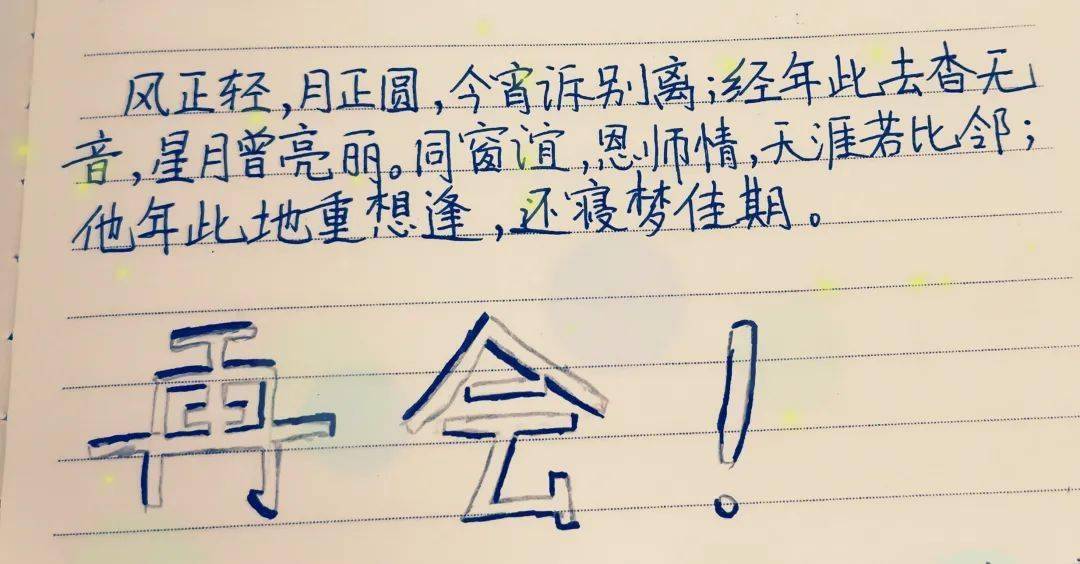 风正轻,月正圆,今宵诉别离;经年此去杳无
音,星月曾亮丽。同窗谊,恩师情,天涯若比邻;
他年此地重想逢,还寝梦佳期。
再会!